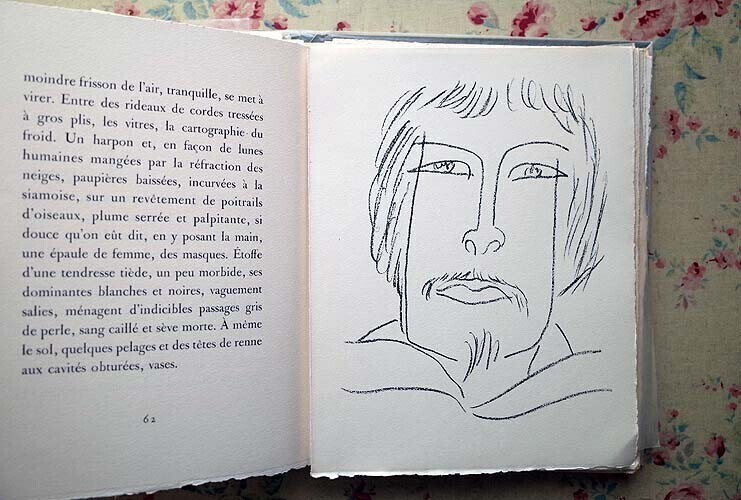 moindre frisson de l'air, tranquille, se met à
virer. Entre des rideaux de cordes tressées
à gros plis, les vitres, la cartographie du
froid. Un harpon et, en façon de lunes
humaines mangées par la réfraction des
neiges, paupières baissées, incurvées à la
siamoise, sur un revêtement de poitrails
d'oiseaux, plume serrée et palpitante, si
douce qu'on eût dit, en y posant la main,
une épaule de femme, des masques. Étoffe
d'une tendresse tiède, un peu morbide, ses
dominantes blanches et noires, vaguement
salies, ménagent d'indicibles passages gris
de perle, sang caillé et sève morte. À même
le sol, quelques pelages et des têtes de renne
aux cavités obturées, vases.
62